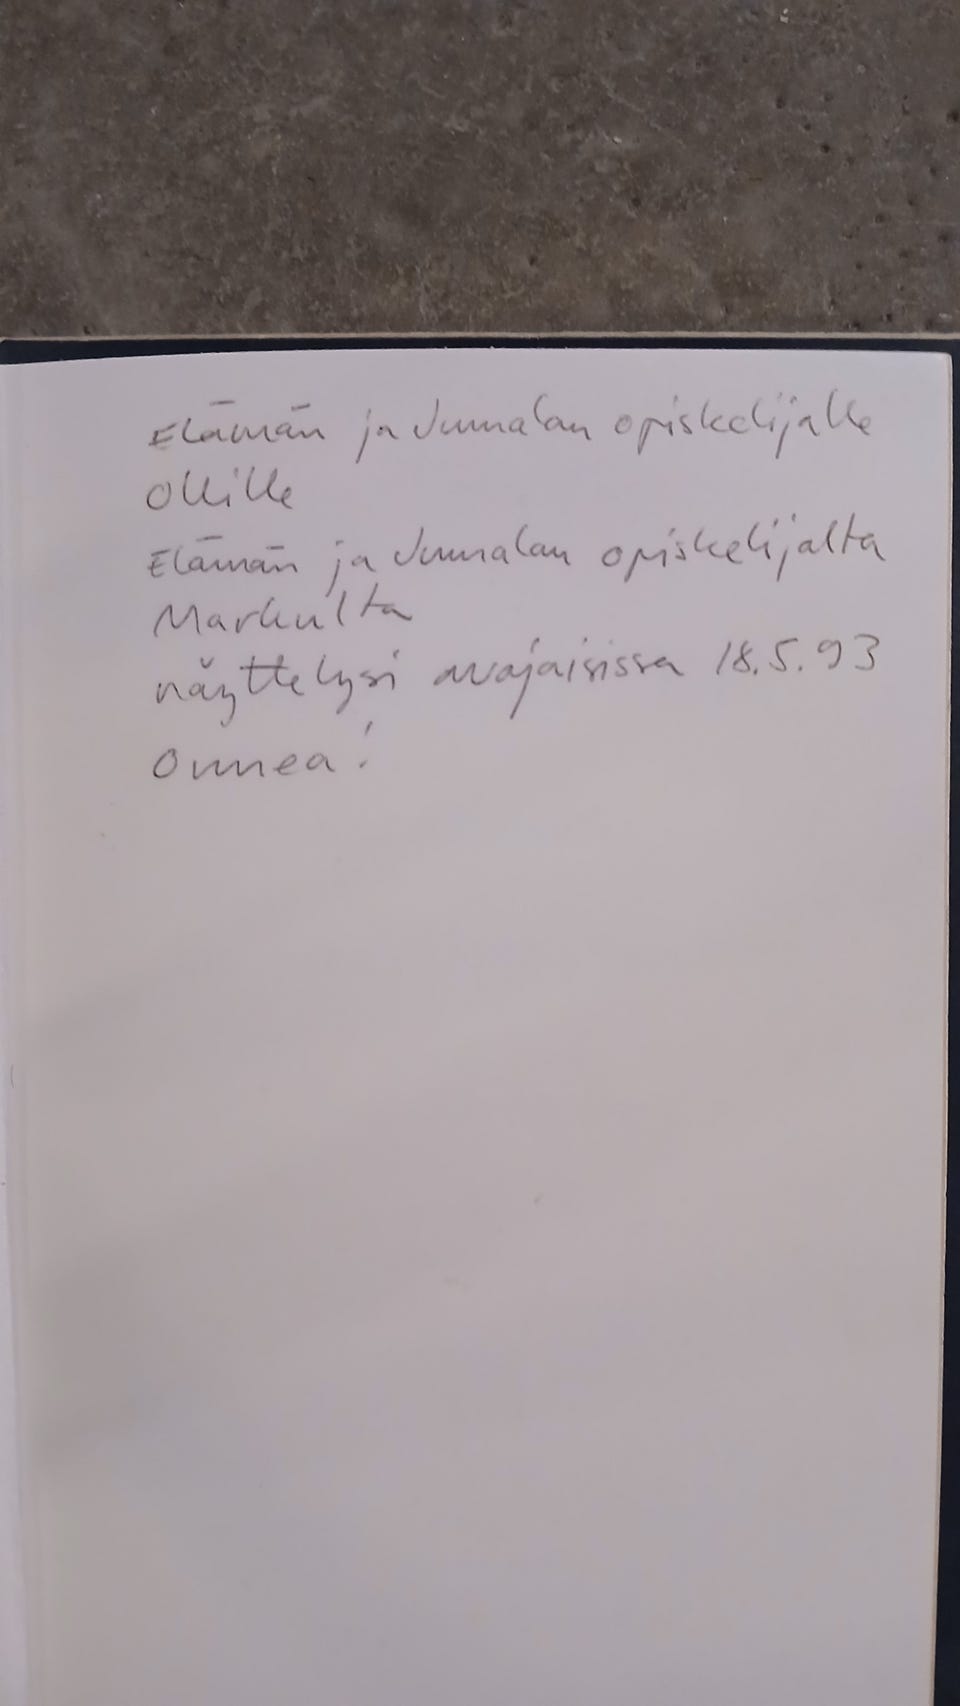 Elämän ja Jumalan opiskelijalle
Ollille
Elämän ja Jumalan opiskelijalta
Markulta
näyttelysi avajaisissa 18.5.93
Onnea!